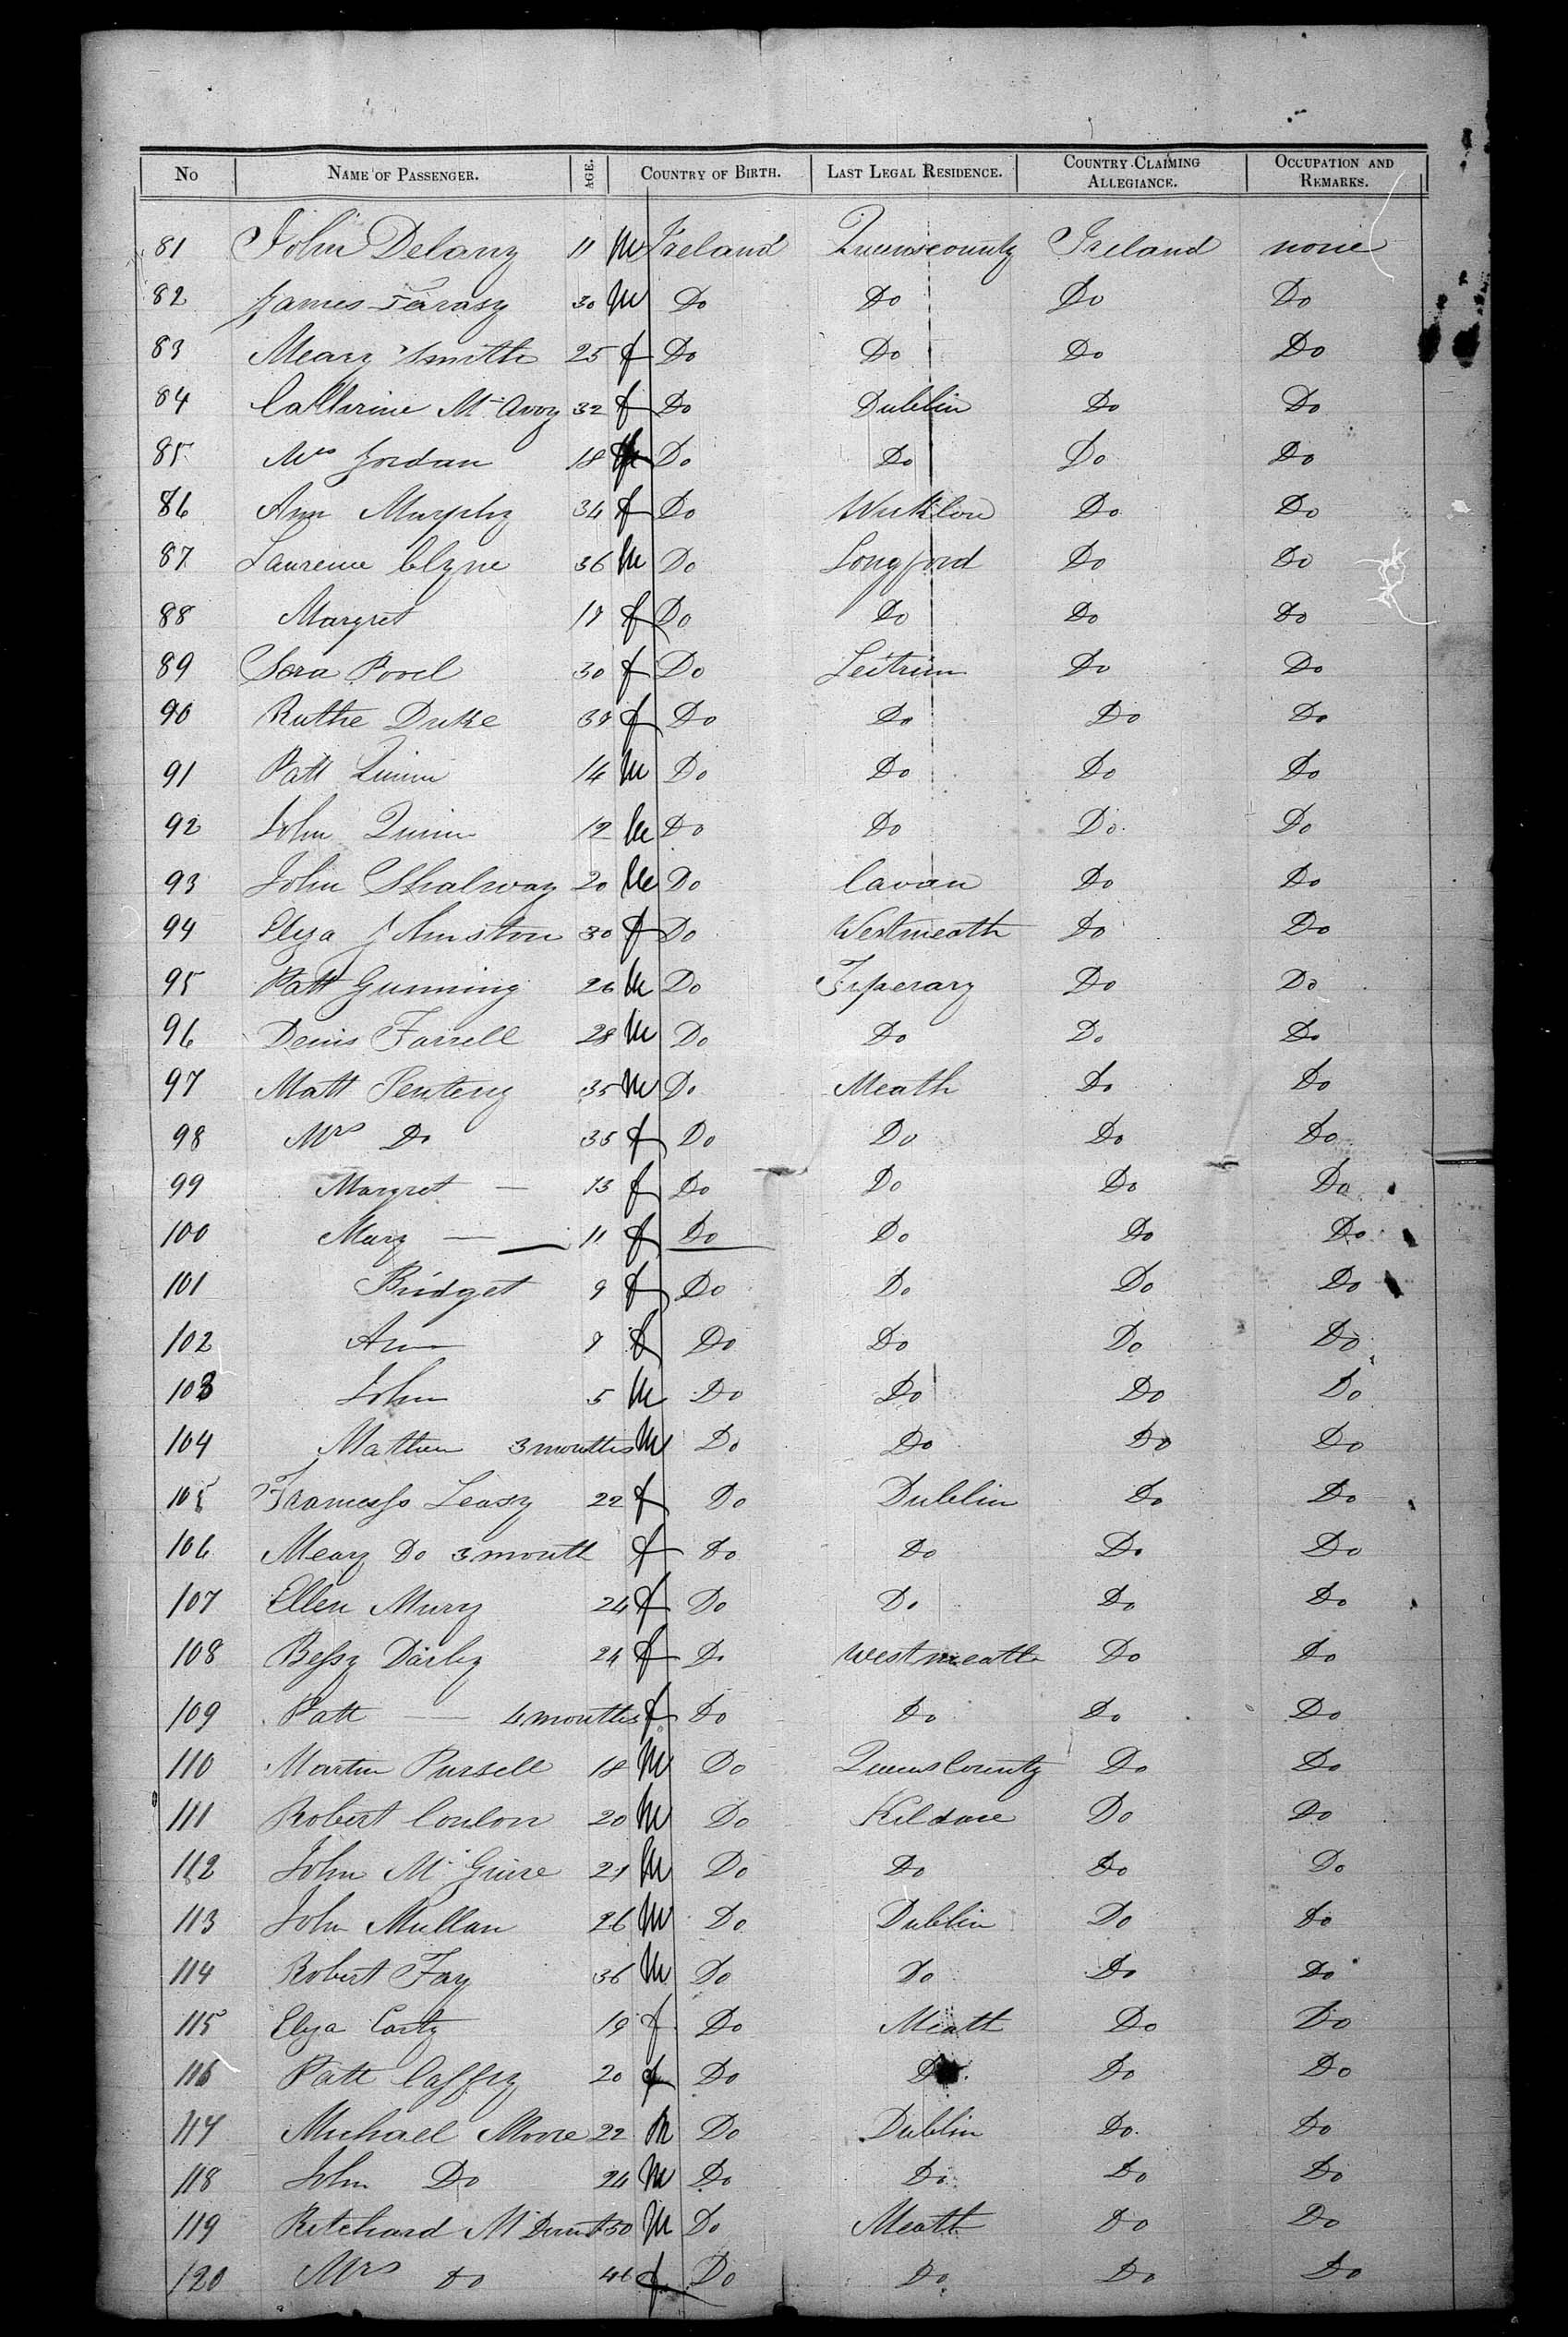 No NAME OF PASSENGER. AGE. COUNTRY OF BIRTH. LAST LEGAL RESIDENCE. COUNTRY CLAIMING ALLEGIANCE. OCCUPATION AND REMARKS.
81 John Delany 11 M Ireland Queenscounty Ireland none
82 James 30 M Do Do Do Do
83 Meary Smith 25 f Do Do Do Do
84 Catharine McAvoy 32 f Do Dublin Do Do
85 Mrs Jordan 18 Do Do Do Do
86 Ann Murphy 34 f Do Wicklow Do Do
87 Laurence Clyne 36 M Do Longford Do Do
88 Margret f Do Do Do Do
89 Sera Pool 30 f Do Leitrim Do Do
90 Ruthe Duke f Do Do Do Do
91 Patt Quinn 14 M Do Do Do Do
92 John Quinn 12 M Do Do Do Do
93 John Shalway 20 M Do Cavan Do Do
94 Elyza Johnston 30 f Do Westmeath Do Do
95 Patt Gunning 26 M Do Tiperary Do Do
96 Denis Farrell 28 M Do Do Do Do
97 Matt Penteny 35 M Do Meath Do Do
98 Mrs Do 35 f Do Do Do Do
99 Margret — 13 f Do Do Do Do
100 Mary — 11 f Do Do Do Do
101 Bridget 9 f Do Do Do Do
102 Ann f Do Do Do Do
103 John 5 M Do Do Do Do
104 Mathew 3 months M Do Do Do Do
105 Leasy 22 f Do Dublin Do Do
106 Meary Do 3 month f Do Do Do Do
107 Ellen Mury 24 f Do Do Do Do
108 Bessy Darby 24 f Do Westmeath Do Do
109 Patt — 4 months f Do Do Do Do
110 Martin Pursell 18 M Do Queens County Do Do
111 Robert Conlon 20 M Do Kildare Do Do
112 John McGuire 21 M Do Do Do Do
113 John Mullan 26 M Do Dublin Do Do
114 Robert Fay 36 M Do Do Do Do
115 Elyza Carty 19 f Do Meath Do Do
116 Patt Caffry 20 f Do Do Do Do
117 Michael Moore 22 M Do Dublin Do Do
118 John Do 24 M Do Do Do Do
119 Ritchard 50 M Do Meath Do Do
120 Mrs Do 46 f Do Do Do Do